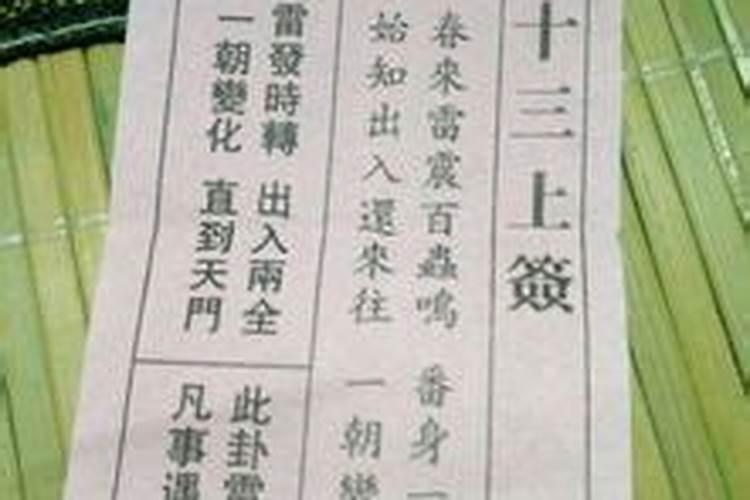 十三上簽
春來雷震百蟲鳴 番身一
始知出入還來往 一朝變
雷發時轉 出入兩全
一朝變化 直到天門
此卦雷
凡事遇